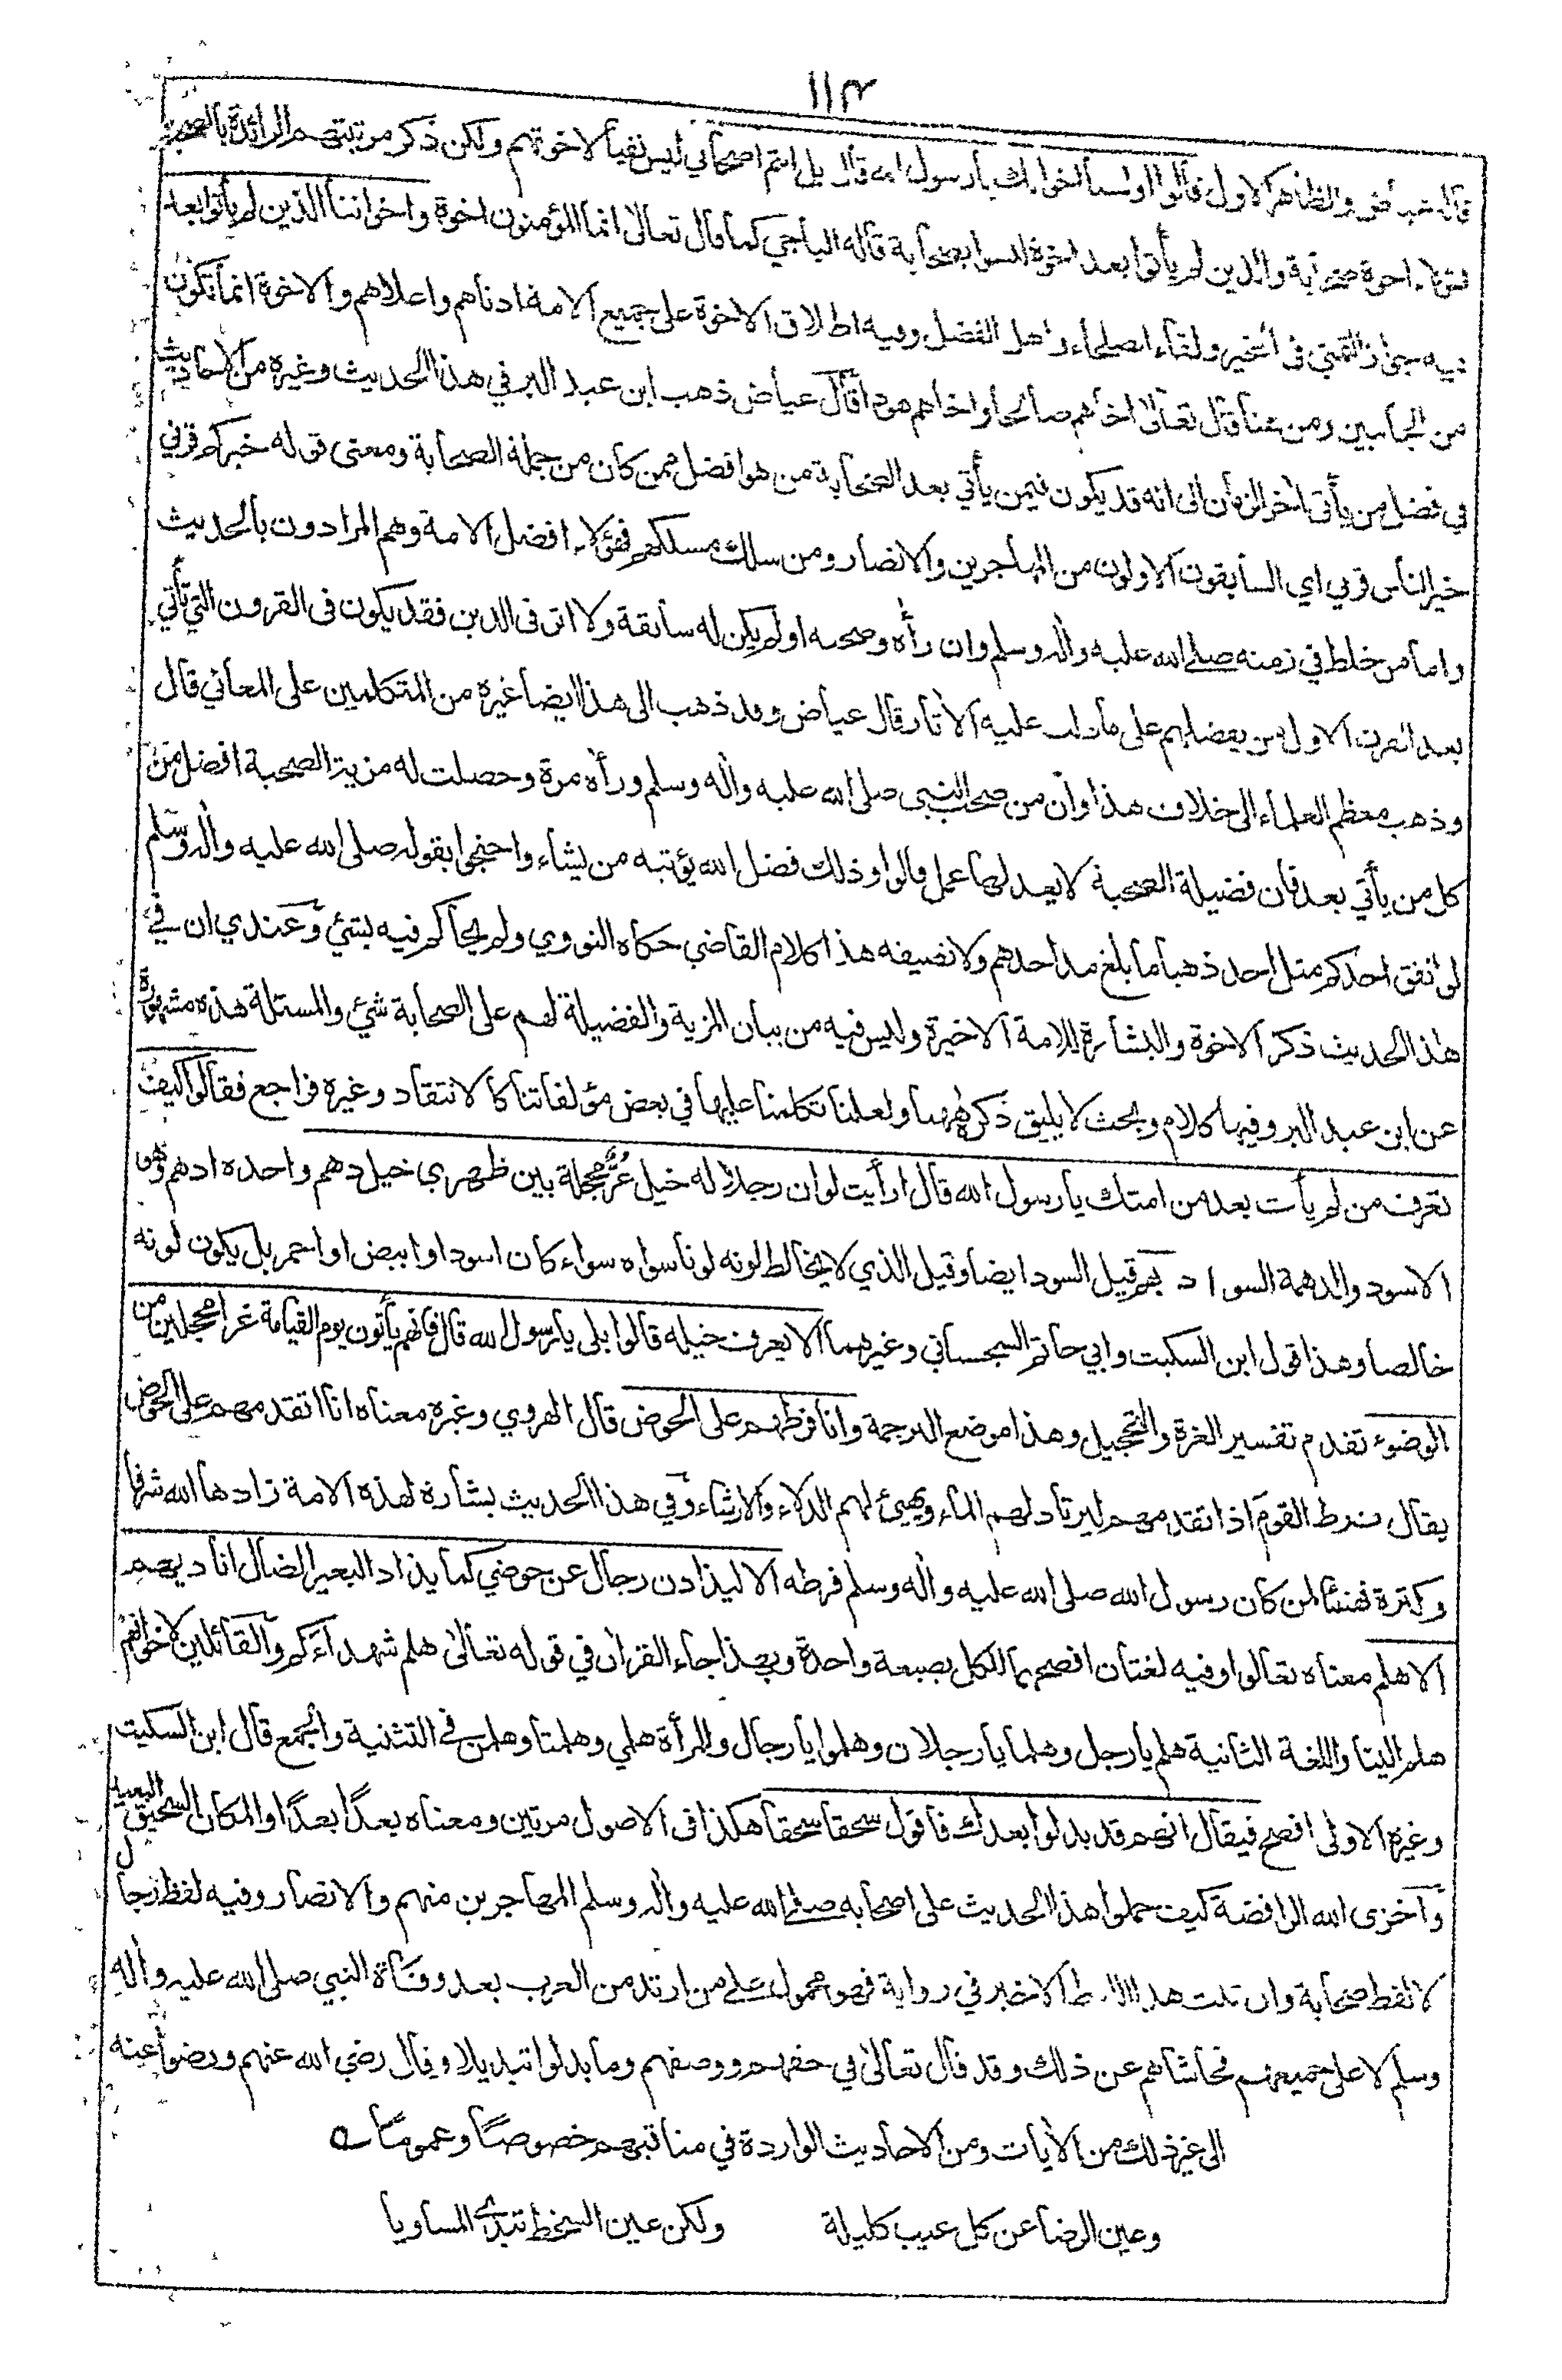 ١١٣
والظاهر الاول قالوا اولسنا اخوانك يا رسول الله قال بل انتم اصحابي ليس نفيا لاخوتهم ولكن ذكر مرتبتهم الزائدة بالصحبة
اخوة صحابة والذين لم يأتوا بعد اخوة ليسوا بصحابة قاله الباجي كما قال تعالى انما المؤمنون اخوة واخواننا الذين لم يأتوا بعد
فيه جواز التمني في الخير ولقاء الصلحاء واهل الفضل وفيه اطلاق الاخوة على جميع الامة ادناهم واعلاهم والاخوة انما تكون
من الجانبين ومن هنا قال تعالى اخاهم صالحا واخاهم هودا قال عياض ذهب ابن عبد البر في هذا الحديث وغيره من الاحاديث
في فضل من يأتي اخر الزمان الى انه قد يكون فيمن يأتي بعد الصحابة من هو افضل ممن كان من جملة الصحابة ومعنى قوله خيركم قرني
خير الناس قرني اي السابقون الاولون من المهاجرين والانصار ومن سلك مسلكهم فهؤلاء افضل الامة وهم المرادون بالحديث
واما من خلط في زمنه صلى الله عليه واله وسلم وان رأه وصحبه او لم يكن له سابقة ولا اثر في الدين فقد يكون في القرون التي تأتي
بعد القرن الاول من يفضلهم على ما دلت عليه الاثار قال عياض وقد ذهب الى هذا ايضا غيره من المتكلمين على المعاني قال
وذهب معظم العلماء الى خلاف هذا وان من صحب النبي صلى الله عليه واله وسلم ورأه مرة وحصلت له مزية الصحبة افضل من
كل من يأتي بعد فان فضيلة الصحبة لا يعدلها عمل قالوا وذلك فضل الله يؤتيه من يشاء واحتجوا بقوله صلى الله عليه واله وسلم
لو انفق احدكم مثل احد ذهبا ما بلغ مد احدهم ولا نصيفه هذا كلام القاضي حكاه النووي ولم يحاكم فيه بشئ وعندي ان في
هذا الحديث ذكر الاخوة والبشارة للامة الاخيرة وليس فيه من بيان المزية والفضيلة لهم على الصحابة شئ والمسئلة هذه مشهورة
عن ابن عبد البر وفيها كلام وبحث لا يليق ذكره ههنا ولعلنا تكلمنا عليها في بعض مؤلفاتنا كالانتقاد وغيره فراجع فقالوا كيف
تعرف من لم يأت بعد من امتك يا رسول الله قال ارأيت لو ان رجلا له خيل غُرٌّ محجلة بين ظهري خيل دهم واحده ادهم وهو
الاسود والدهمة السواد بهم قيل السود ايضا وقيل الذي لا يخالط لونه لونا سواه سواء كان اسود او ابيض او احمر بل يكون لونه
خالصا وهذا قول ابن السكيت وابي حاتم السجستاني وغيرهما الا يعرف خيله قالوا بلى يا رسول الله قال فانهم يأتون يوم القيامة غرا محجلين من
الوضوء تقدم تفسير الغرة والتحجيل وهذا موضع الترجمة وانا فرطهم على الحوض قال الهروي وغيره معناه انا اتقدمهم على الحوض
يقال فرط القوم اذا تقدمهم ليرتاد لهم الماء ويهيئ لهم الدلاء والارشاء وفي هذا الحديث بشارة لهذه الامة زادها الله شرفا
وكثرة فهنيئا لمن كان رسول الله صلى الله عليه واله وسلم فرطه الا ليذادن رجال عن حوضي كما يذاد البعير الضال اناديهم
الا هلم معناه تعالوا وفيه لغتان افصحهما للكل بصيغة واحدة وبهذا جاء القران في قوله تعالى هلم شهداءكم والقائلين لاخوانهم
هلم الينا واللغة الثانية هلم يا رجل وهلما يا رجلان وهلموا يا رجال والمرأة هلمي وهلمتا وهلمن في التثنية والجمع قال ابن السكيت
وغيره الاولى افصح فيقال انهم قد بدلوا بعدك فاقول سحقا سحقا هكذا في الاصول مرتين ومعناه بعدًا بعدًا والمكان السحيق البعيد
واخزى الله الرافضة كيف حملوا هذا الحديث على اصحابه صلى الله عليه واله وسلم المهاجرين منهم والانصار وفيه لفظ رجال
لا لفظ صحابة وان ثبت هذا اللفظ الاخير في رواية فهو محمول على من ارتد من العرب بعد وفاة النبي صلى الله عليه واله
وسلم لا على جميعهم فحاشاهم عن ذلك وقد قال تعالى في حقهم ووصفهم وما بدلوا تبديلا وقال رضي الله عنهم ورضوا عنه
الى غير ذلك من الايات ومن الاحاديث الواردة في مناقبهم خصوصًا وعمومًا
وعين الرضا عن كل عيب كليلة ولكن عين السخط تبدي المساويا